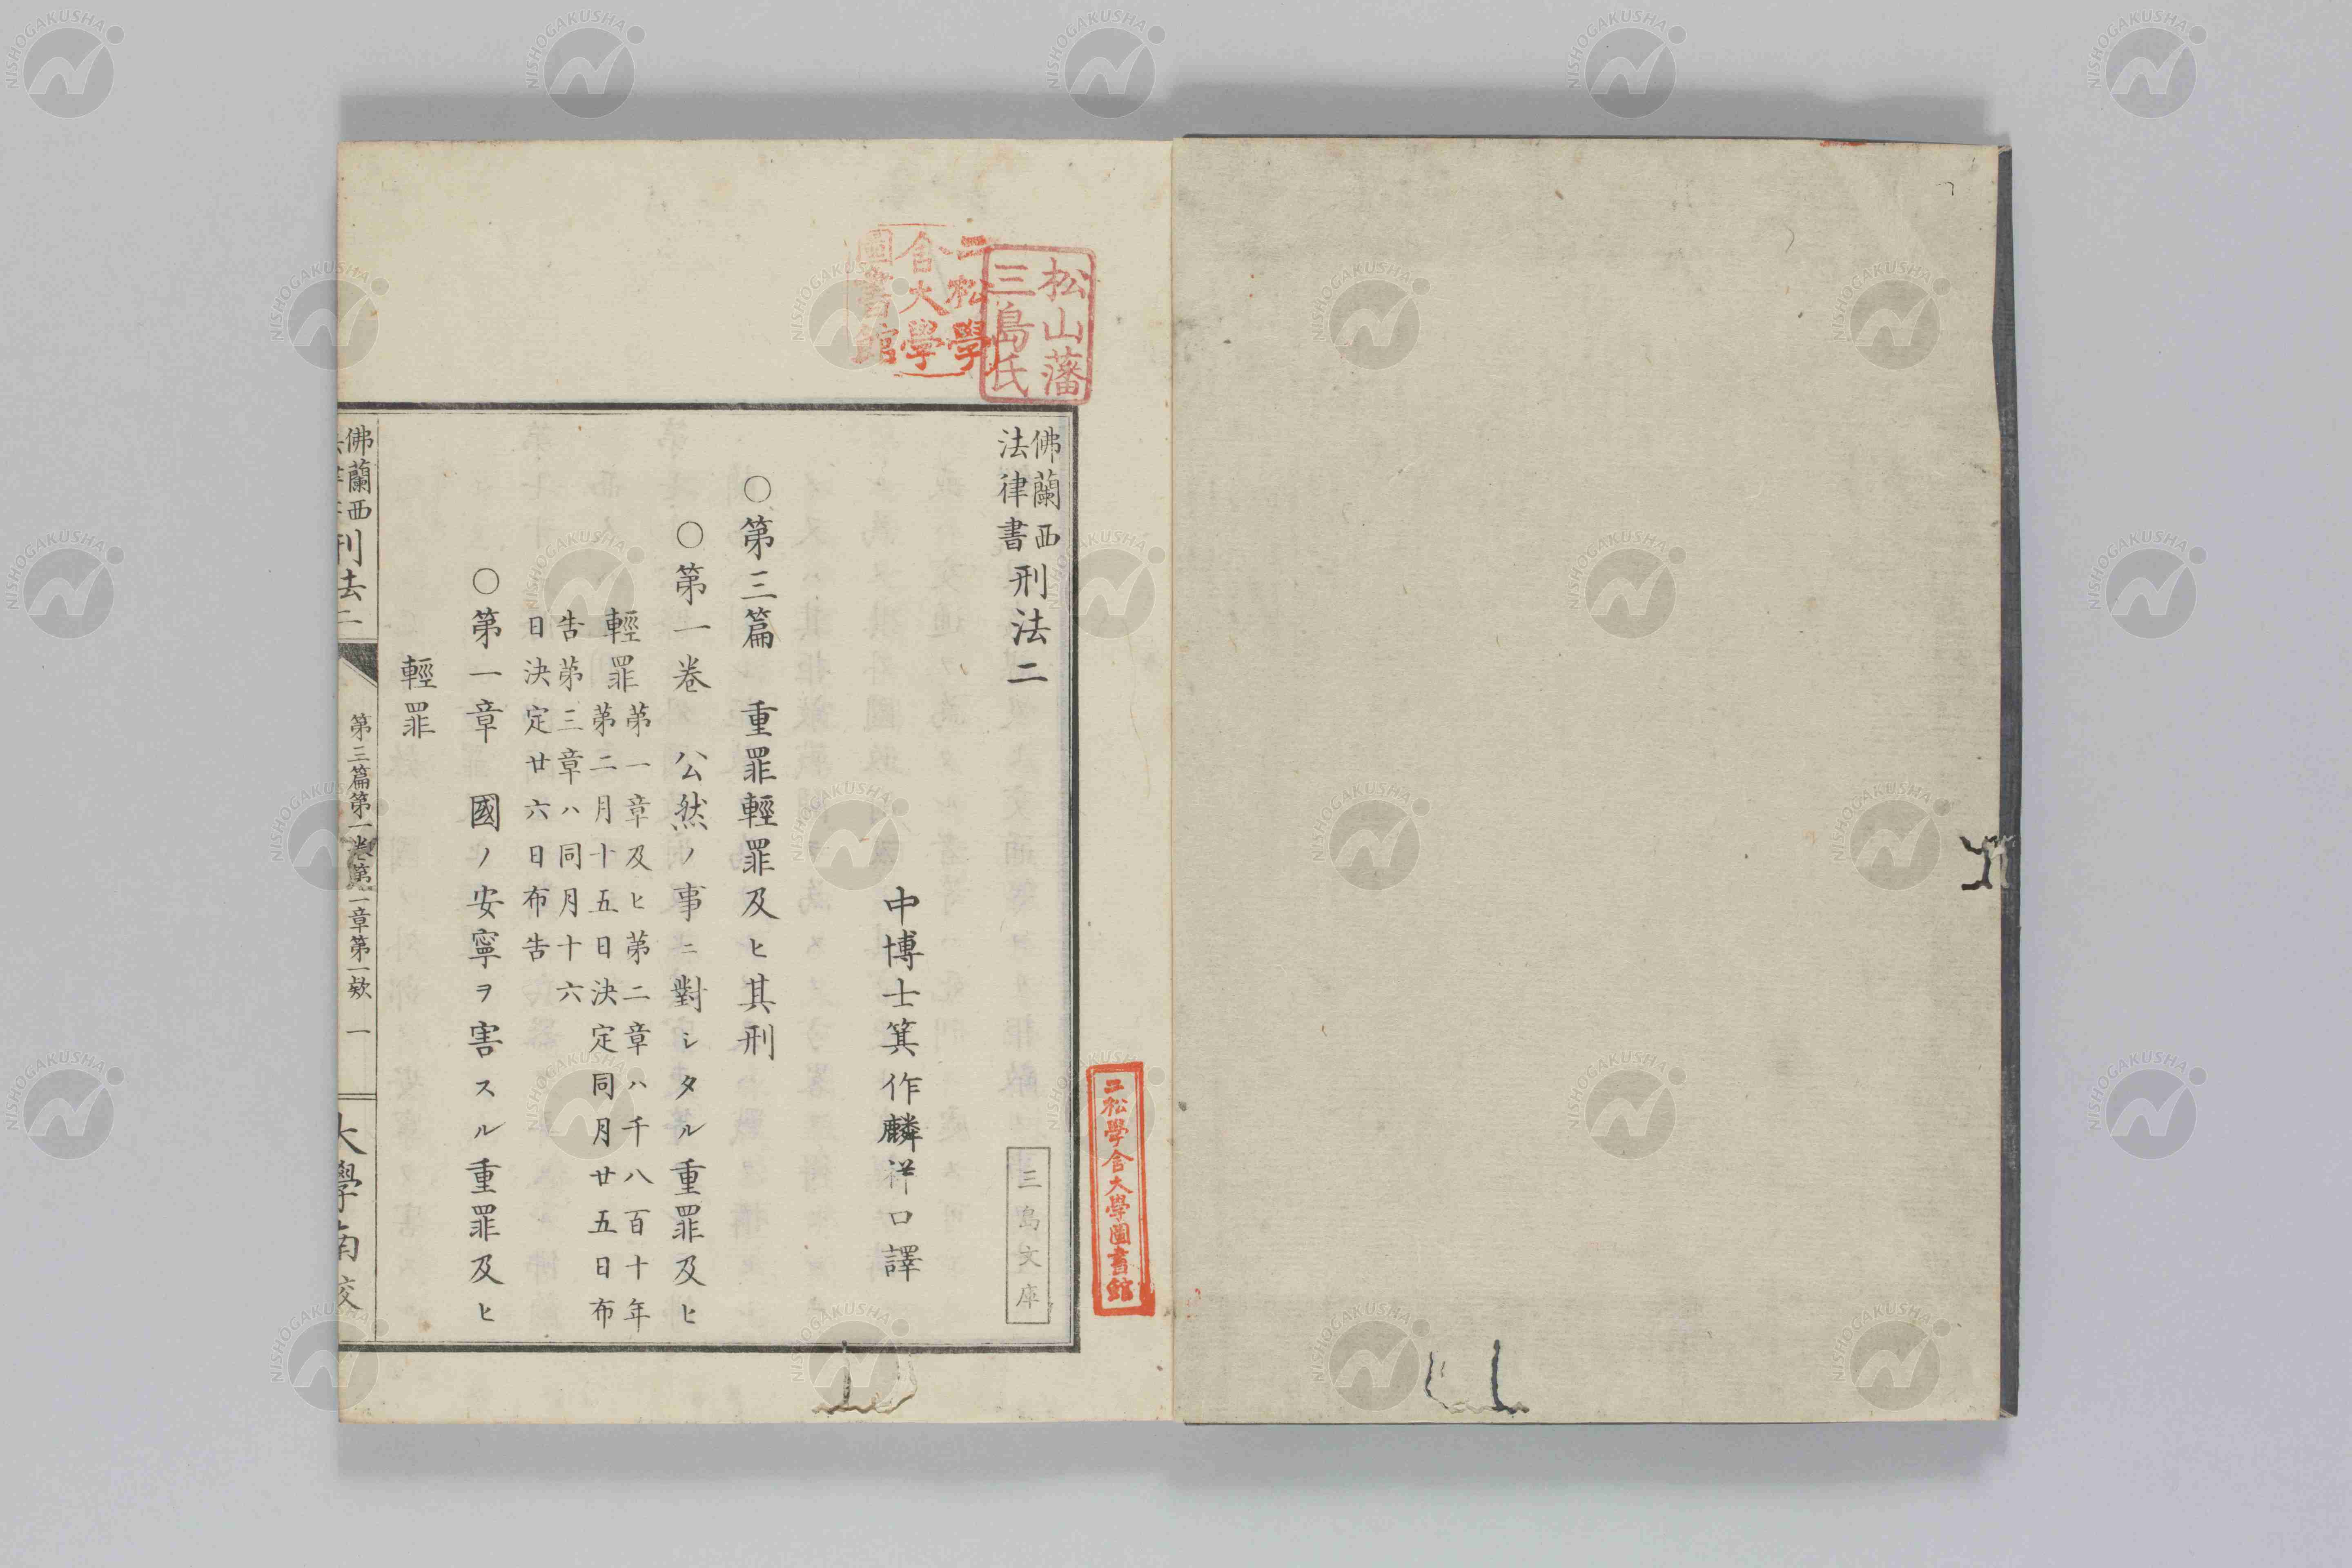 佛蘭西
法律書
刑法二
中博士箕作麟祥口譯
○第三篇　重罪輕罪及ヒ其刑
○第一卷　公然ノ事ニ對シタル重罪及ヒ
輕罪
第一章及ヒ第二章ハ千八百十年
第二月十五日決定同月廿五日布
告第三章ハ同月十六
日決定廿六日布告
○第一章　國ノ安寧ヲ害スル重罪及ヒ
輕罪
佛蘭西
刑法二
第三篇第一卷第一章第一欵　一
大學南校
松山藩
三島氏
二松學
舍大學
圖書館
三島文庫
二松學舍大學圖書館
NISHOGAKUSHA